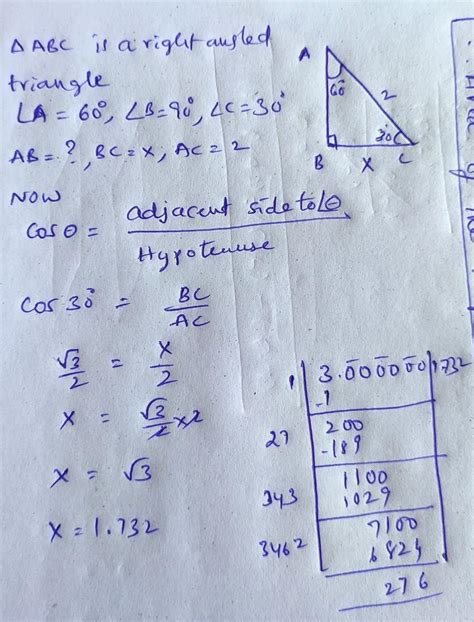 Δ ABC is a right angled
triangle
∠A = 60°, ∠B = 90°, ∠C = 30°
AB = ?, BC = x, AC = 2
NOW
Cos θ = adjacent side to ∠θ
Hypotenuse
Cos 30° = BC
AC
√3 = x
2 2
x = √3 × 2
2
x = √3
x = 1.732
A
60°
2
30°
B x C
1 3.000000 1.732
-1
27 200
-189
343 1100
1029
3462 7100
6924
276